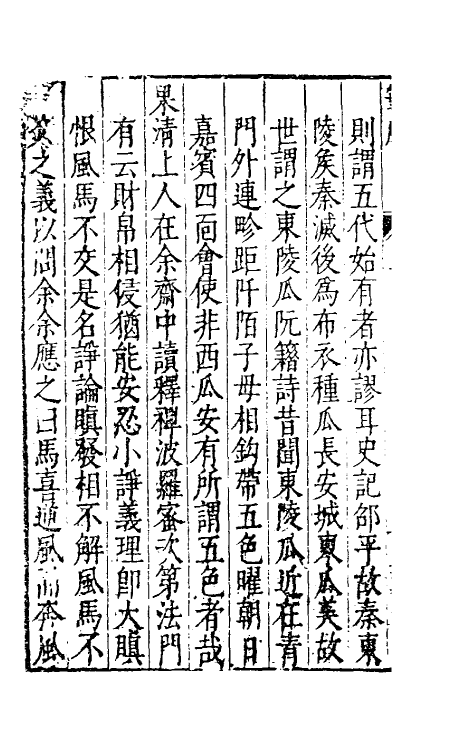 則謂五代始有者亦謬耳史記邵平故秦東
陵矦秦滅後爲布衣種瓜長安城東瓜美故
世謂之東陵瓜阮籍詩昔聞東陵瓜近在青
門外連畛距阡陌子母相鈎帶五色曜朝日
嘉賓四面會使非西瓜安有所謂五色者哉
果清上人在余齋中讀釋禪波羅蜜次第法門
有云財帛相侵猶能安忍小諍義理卽大瞋
恨風馬不交是名諍論瞋發相不解風馬不
之義以問余余應之曰馬喜逆風而奔風